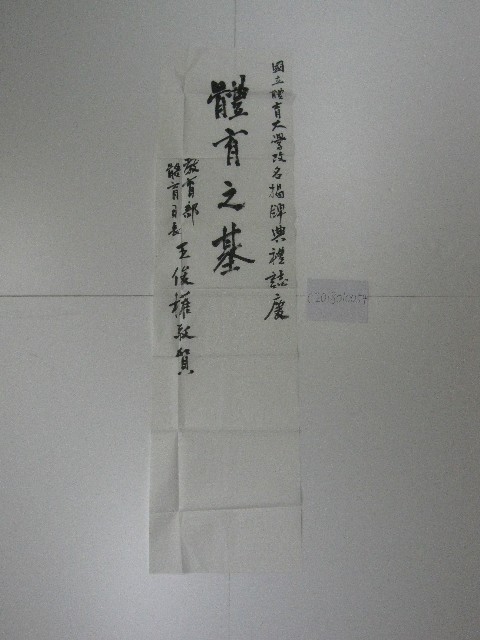 國立體育大學改名揭牌典禮誌慶
體育之基
教育部
體育司長
王俊權敬賀